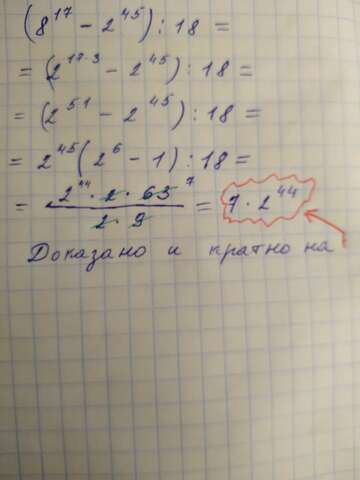 (8¹⁷ - 2⁴⁵) : 18 =
= (2¹⁷·³ - 2⁴⁵) : 18 =
= (2⁵¹ - 2⁴⁵) : 18 =
= 2⁴⁵(2⁶ - 1) : 18 =
= 2⁴⁴ · 2 · 63 7 / 2 · 9 = 7 · 2⁴⁴
Доказано и кратно на